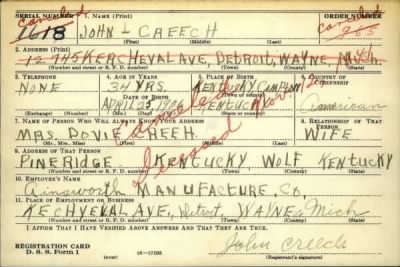 SERIAL NUMBER 1. NAME (Print) ORDER NUMBER
canceled 1618 JOHN - CREECH canceled 965
(First) (Middle) (Last)
2. ADDRESS (Print)
12745 KERCHEVAL AVE, DETROIT, WAYNE, Mich.
(Number and street or R. F. D. number) (Town) (County) (State)
3. TELEPHONE 4. AGE IN YEARS 5. PLACE OF BIRTH 6. COUNTRY OF CITIZENSHIP
NONE 34 YRS. KENTUCKY
DATE OF BIRTH
APRIL 25, 1906 KENTUCKY American
(Mo.) (Day) (Yr.) (State or country)
7. NAME OF PERSON WHO WILL ALWAYS KNOW YOUR ADDRESS 8. RELATIONSHIP OF THAT PERSON
MRS. DOVIE CREEH. WIFE
(Mr., Mrs., Miss) (First) (Middle) (Last)
Canceled Deceased Nov.
9. ADDRESS OF THAT PERSON
PINERIDGE KENTUCKY WOLF KENTUCKY
(Number and street or R. F. D. number) (Town) (County) (State)
10. EMPLOYER'S NAME
Ainsworth MANUFACTURE. Co.
11. PLACE OF EMPLOYMENT OR BUSINESS
KECHYEVAL AVE, Detroit WAYNE Mich
(Number and street or R. F. D. number) (Town) (County) (State)
I AFFIRM THAT I HAVE VERIFIED ABOVE ANSWERS AND THAT THEY ARE TRUE.
REGISTRATION CARD
D. S. S. Form 1 16-17105 John Creech
(Registrant's signature)